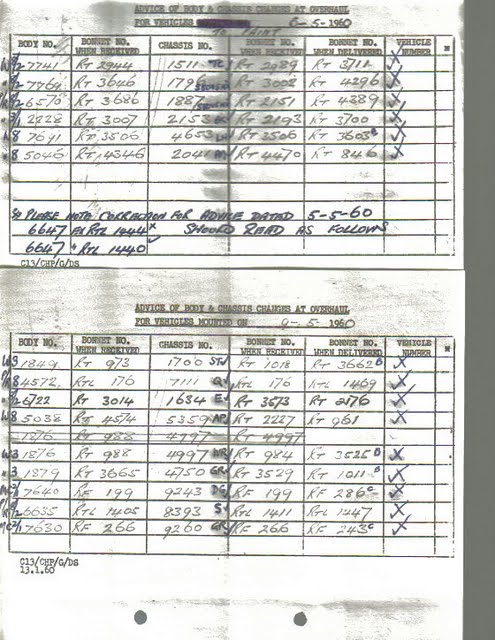 ADVICE OF BODY & CHASSIS CHANGES AT OVERHAUL
FOR VEHICLES TO PAINT 6-5-1960
BODY NO. BONNET NO. WHEN RECEIVED CHASSIS NO. BONNET NO. WHEN RECEIVED BONNET NO. WHEN DELIVERED VEHICLE NUMBER
7741 RT 2944 1511 RT 2989 RT 3711
7764 RT 3646 1796 RT 3002 RT 4296
6570 RT 3686 1887 RT 2151 RT 4389
2228 RT 3007 2153 RT 2193 RT 3700
W8 7691 RT 3506 4653 RT 3506 RT 3603
8 5046 RT 4346 2041 RT 4470 RT 846
PLEASE NOTE CORRECTION FOR ADVICE DATED 5-5-60
6647 RTL 1444 SHOULD READ AS FOLLOWS
6647 " RTL 1440
C13/CHP/G/DS
ADVICE OF BODY & CHASSIS CHANGES AT OVERHAUL
FOR VEHICLES MOUNTED ON 6-5-1960
BODY NO. BONNET NO. WHEN RECEIVED CHASSIS NO. BONNET NO. WHEN RECEIVED BONNET NO. WHEN DELIVERED VEHICLE NUMBER
W3 1849 RT 973 1700 RT 1018 RT 3662 B
4572 RTL 176 7111 RTL 176 RTL 1469
6722 RT 3014 1684 RT 3573 RT 2176
W8 5038 RT 4574 5359 RT 2227 RT 961
1876 RT 988 4997 RT 4997
W3 1876 RT 988 4997 RT 984 RT 3525 B
3 1879 RT 3665 4750 RT 3529 RT 1011 B
7640 RF 199 9243 RF 199 RF 286 C
6635 RTL 1405 8393 RTL 1411 RTL 1447
7630 RF 266 9260 RF 266 RF 243 C
C13/CHP/G/DS
13.1.60